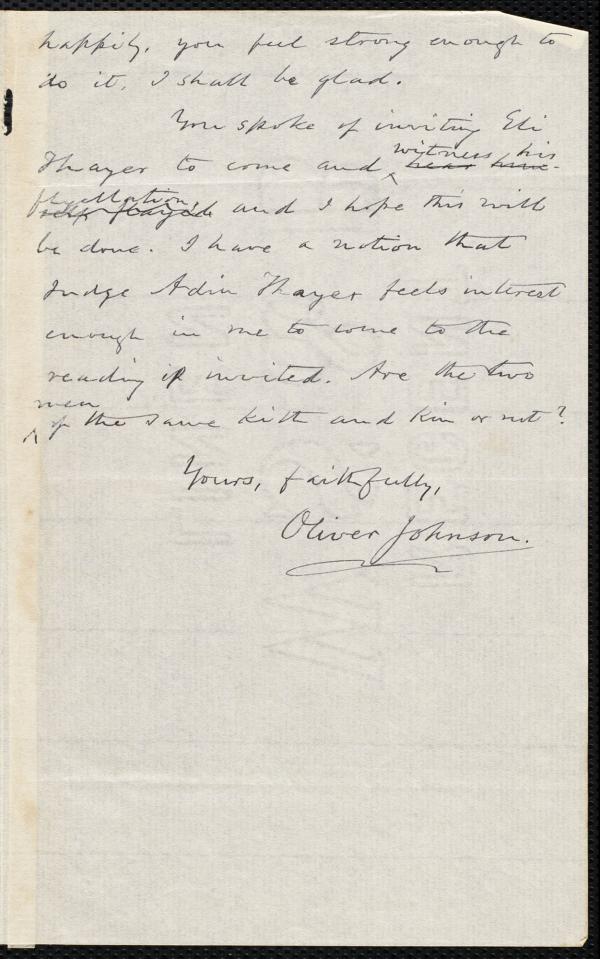 happily, you feel strong enough to
do it, I shall be glad.
You spoke of inviting Eli
Thayer to come and witness his
hear him-
flagellation,
self flayed and I hope this will
be done. I have a notion that
Judge Adin Thayer feels interest
enough in me to come to the
reading if invited. Are the two
men
of the same Kith and Kin or not?
Yours, faithfully,
Oliver Johnson.